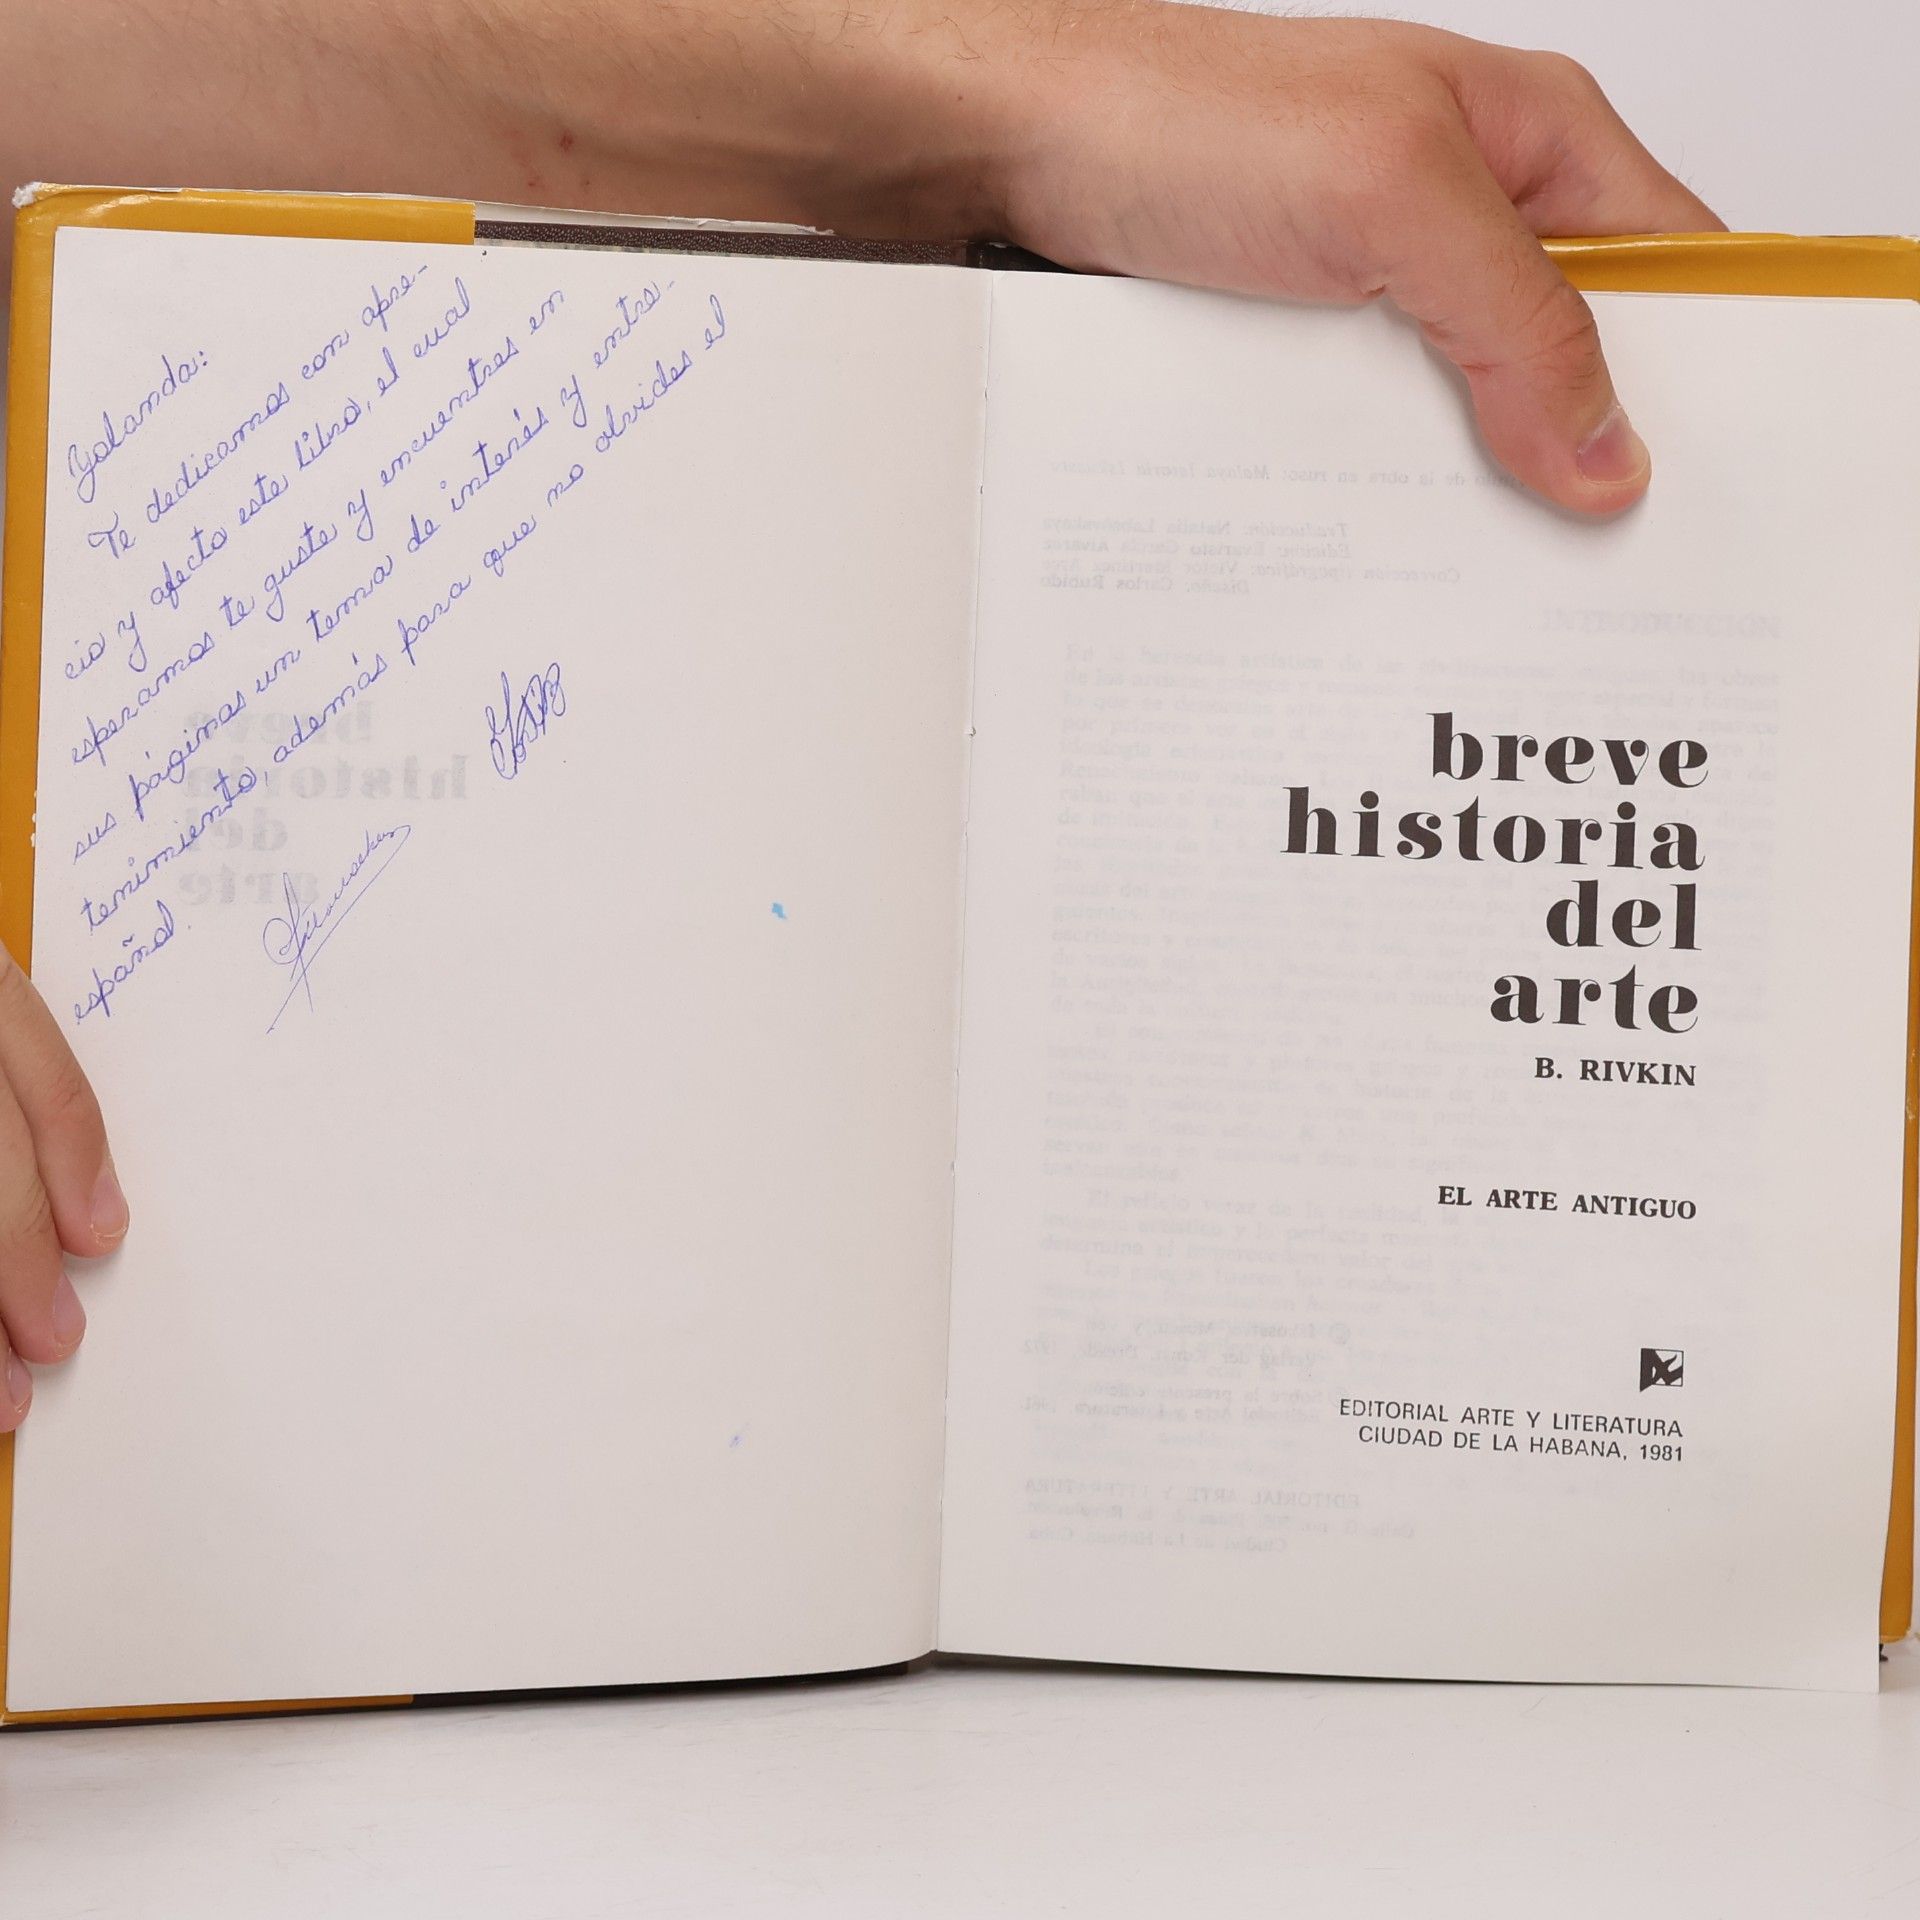 Yolanda:
Te dedicamos con apre-
cio y afecto este libro, el cual
esperamos te guste y encuentres en
sus páginas un tema de interés y entre-
tenimiento, además para que no olvides el
español.
breve
historia
del
arte
B. RIVKIN
EL ARTE ANTIGUO
EDITORIAL ARTE Y LITERATURA
CIUDAD DE LA HABANA, 1981